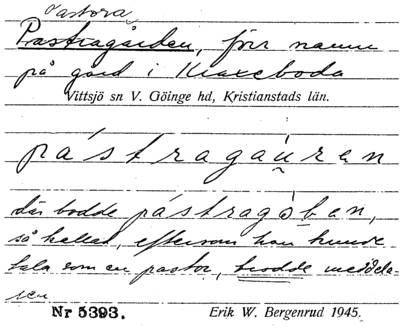 Pastora
Pastragården, förr namn
på gård i Kraxeboda
Vittsjö sn V. Göinge hd, Kristianstads län.
pástragáu̯ren
där bodde pástragòben,
så kallad, eftersom han kunde
tala som en pastor, trodde meddela-
ren
Nr 5393.
Erik W. Bergenrud 1945.